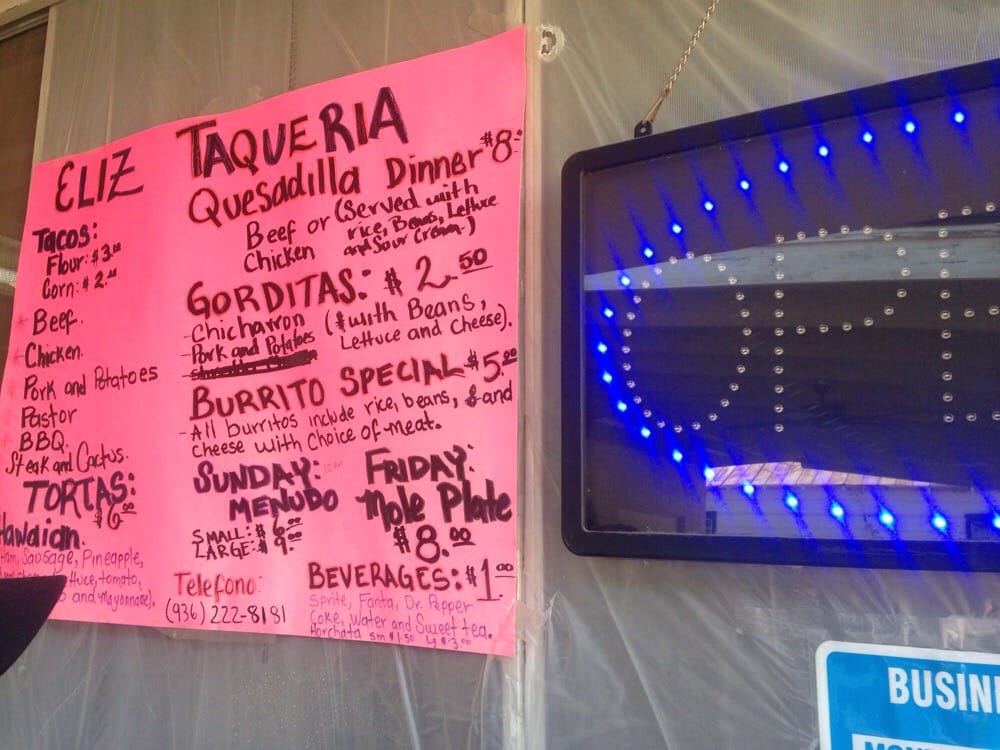 ELIZ TAQUERIA
Tacos:
Flour: $3.00
Corn: $2.00
Beef.
Chicken.
Pork and Potatoes
Pastor
BBQ.
Steak and Cactus.
TORTAS:
$6.00
Hawaiian.
Ham, Sausage, Pineapple,
tomato,
and Mayonnaise).
Quesadilla Dinner $8.-
Beef or
Chicken
(Served with
rice, Beans, Lettuce
and Sour Cream.)
GORDITAS: $2.50
- Chicharron
- Pork and Potatoes
(with Beans,
Lettuce and Cheese).
BURRITO SPECIAL $5.00
- All burritos include rice, beans, and
cheese with choice of meat.
SUNDAY:
MENUDO
SMALL: $6.00
LARGE: $9.00
FRIDAY:
Mole Plate
$8.00
Telefono:
(936) 222-8181
BEVERAGES: $1.00
Sprite, Fanta, Dr. Pepper
Coke, Water and Sweet tea.
Horchata sm $1.50 Lg $3.00
OPE
BUSIN